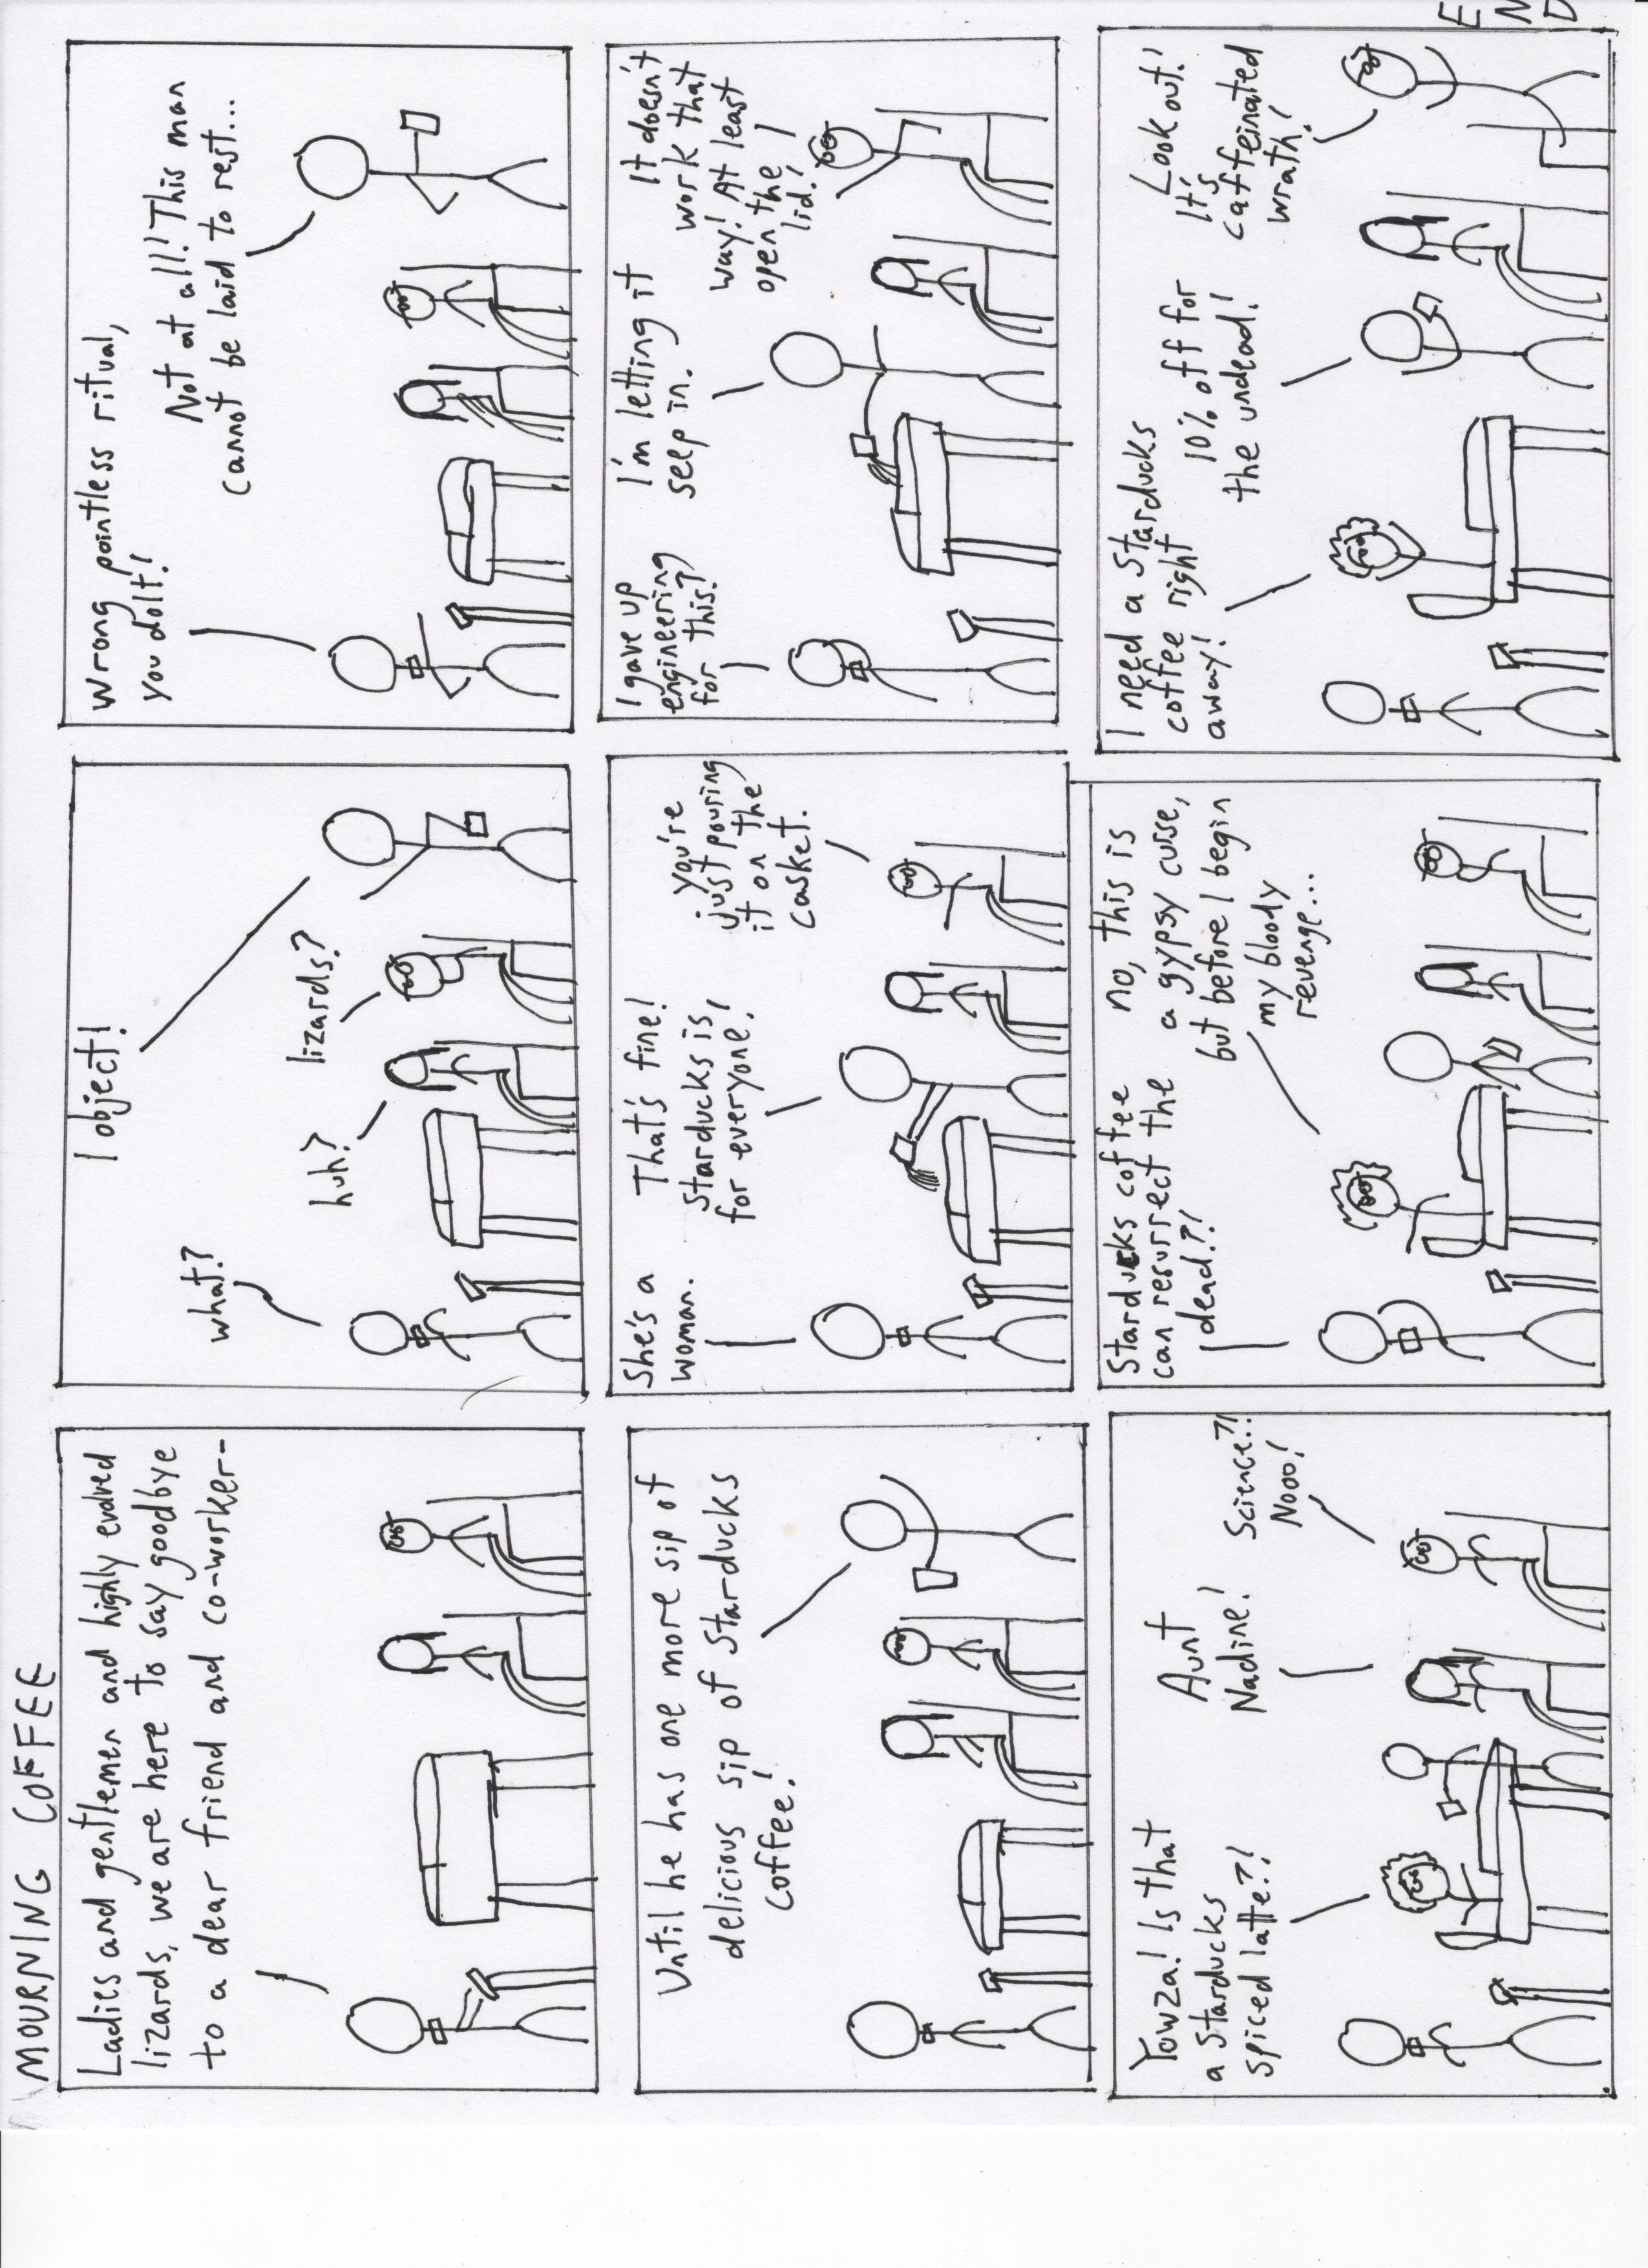 MOURNING COFFEE
Ladies and gentlemen and highly evolved
lizards, we are here to say goodbye
to a dear friend and co-worker-
I object!
what?
huh?
lizards?
wrong pointless ritual,
you dolt!
Not at all! This man
cannot be laid to rest...
Until he has one more sip of
delicious sip of Starducks
coffee!
She's a
woman.
That's fine!
Starducks is
for everyone!
you're
just pouring
it on the
casket.
I gave up
engineering
for this?
I'm letting it
seep in.
It doesn't
work that
way! At least
open the
lid!
Yowza! Is that
a Starducks
spiced latte?!
Aunt
Nadine!
Science?!
Nooo!
Starducks coffee
can resurrect the
dead?!
no, this is
a gypsy curse,
but before I begin
my bloody
revenge...
I need a Starducks
coffee right
away!
10% off for
the undead!
Look out!
It's
caffeinated
wrath!
E
N
D